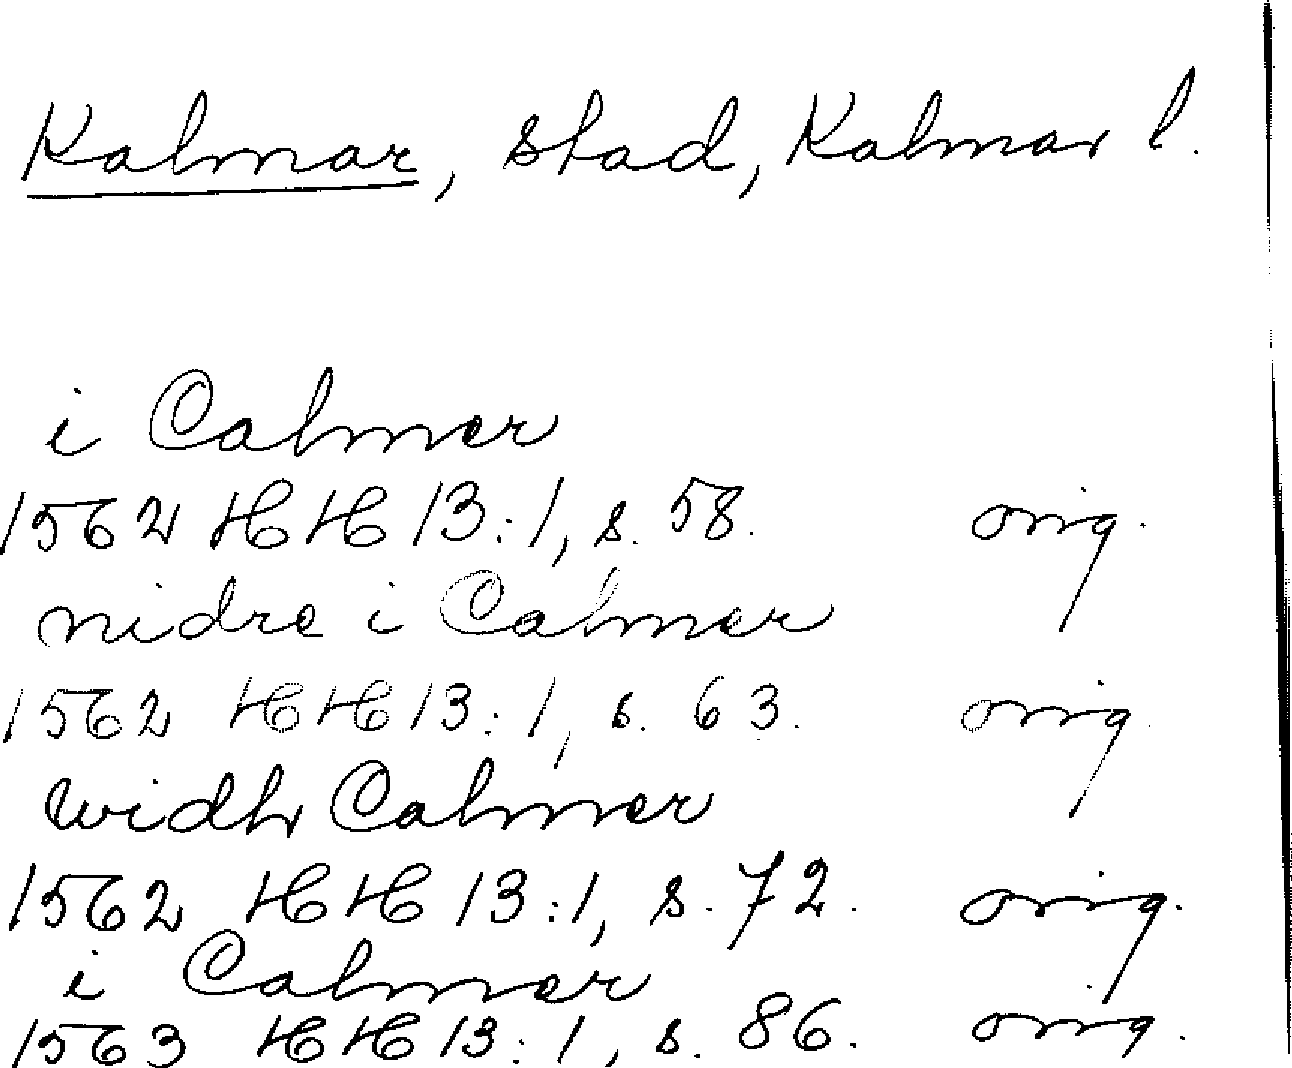 Kalmar, stad, Kalmar l.
i Calmer
1562 HH 13:1, s. 58. orig.
nidre i Calmer
1562 HH 13:1, s. 63. orig.
widh Calmer
1562 HH 13:1, s. 72. orig.
i Calmer
1563 HH 13:1, s. 86. orig.